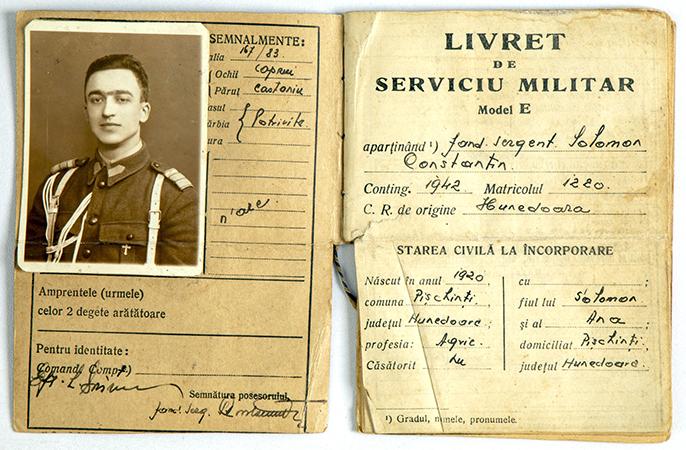 SEMNALMENTE:
alia 167/83
Ochii căprui
Părul castaniu
asul
ărbia } Potrivite
ura
n'are
Amprentele (urmele)
celor 2 degete arătătoare
Pentru identitate:
Comand. Comp.
Semnătura posesorului,
LIVRET
DE
SERVICIU MILITAR
Model E
aparținând ¹) fand. sergent Solomon
Constantin
Conting. 1942 Matricolul 1220.
C. R. de origine Hunedoara
STAREA CIVILĂ LA ÎNCORPORARE
Născut în anul 1920
comuna Pischinți
județul Hunedoara;
profesia: Agric.
Căsătorit nu
cu ;
fiul lui Solomon
și al Ana
domiciliat Pischinți;
județul Hunedoara.
¹) Gradul, numele, pronumele.